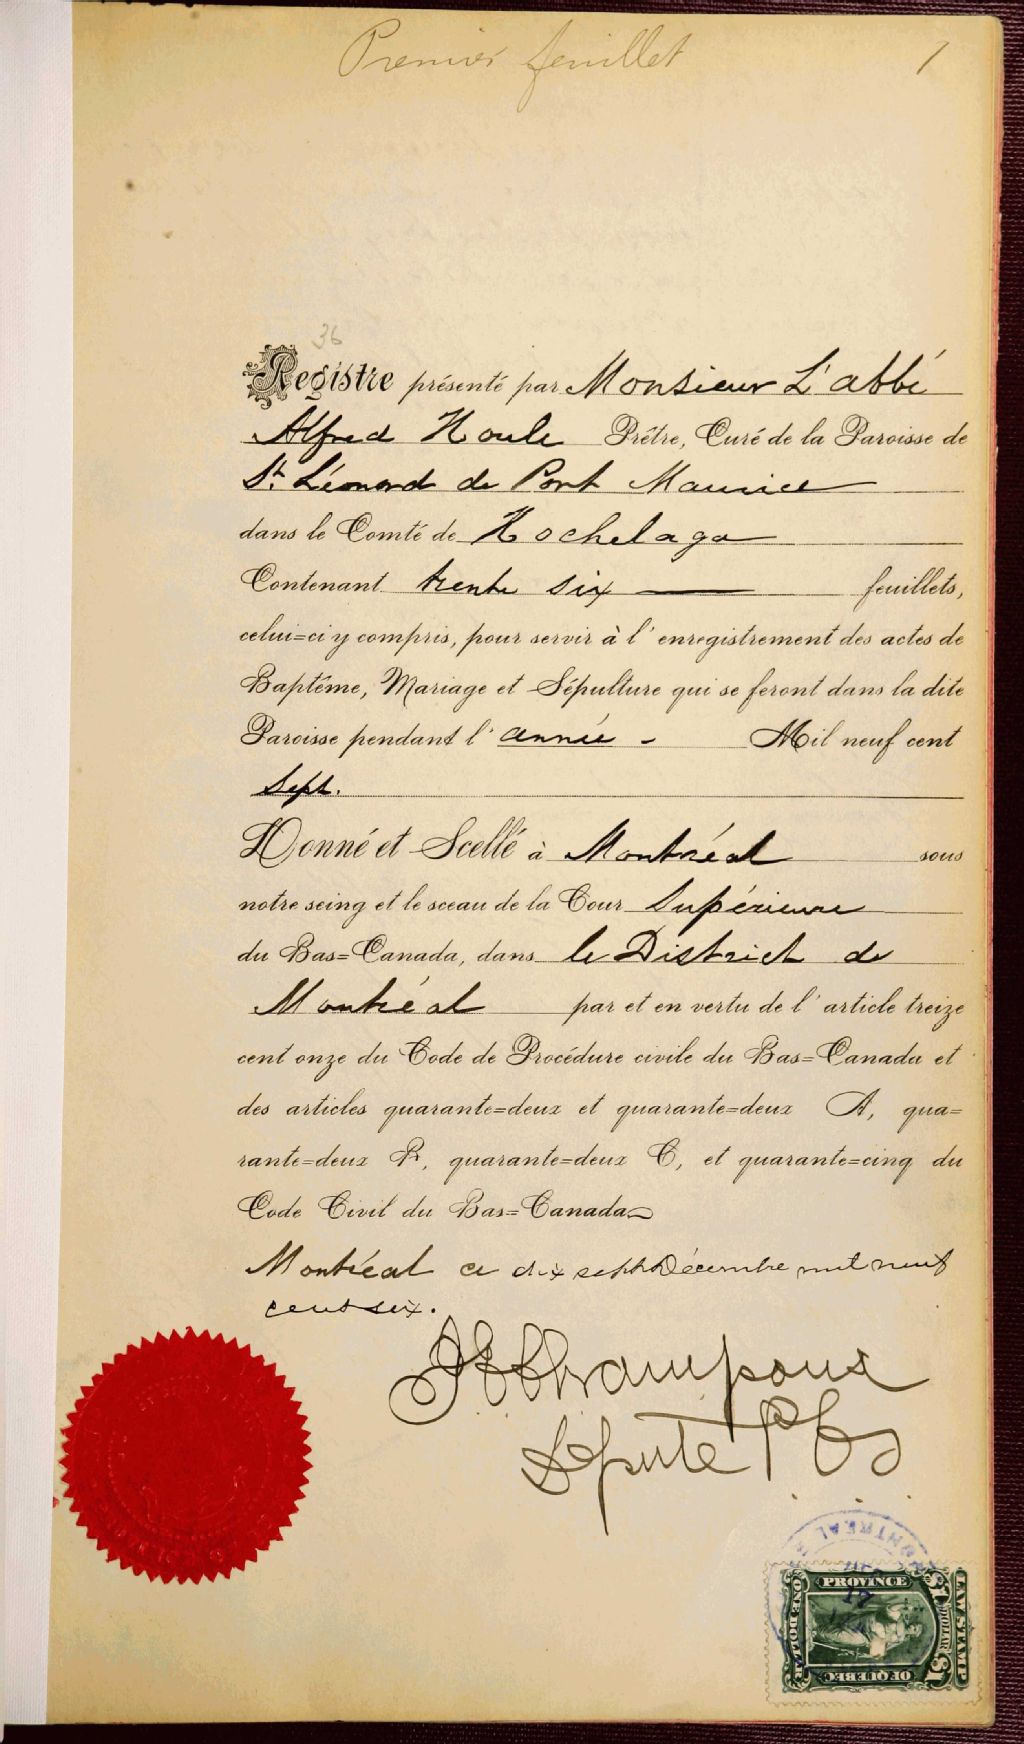 Premier feuillet 1
36
Registre présenté par Monsieur L'abbé
Alfred Houle Prêtre, Curé de la Paroisse de
St. Léonard de Port Maurice
dans le Comté de Hochelaga
Contenant trente six feuillets,
celui=ci y compris, pour servir à l'enregistrement des actes de
Baptême, Mariage et Sépulture qui se feront dans la dite
Paroisse pendant l'année - Mil neuf cent
Sept.
Donné et Scellé à Montréal sous
notre seing et le sceau de la Cour Supérieure
du Bas=Canada, dans le District de
Montréal par et en vertu de l'article treize
cent onze du Code de Procédure civile du Bas=Canada et
des articles quarante=deux et quarante=deux A, qua=
rante=deux B, quarante=deux C, et quarante=cinq du
Code Civil du Bas=Canada
Montréal ce dix sept Décembre mil neuf
cent six.
Champoux
Député P
MONTREAL
17
PROVINCE
OF QUEBEC
ONE DOLLAR
$1 DOLLAR $1
LAW STAMP